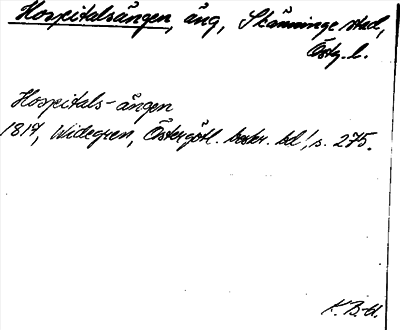 Hospitalsängen, äng, Skänninge stad,
Östg. l.
Hospitals-ängen
1817, Widegren, Östergötl. beskr. bd 1, s. 275.
K. B-d.